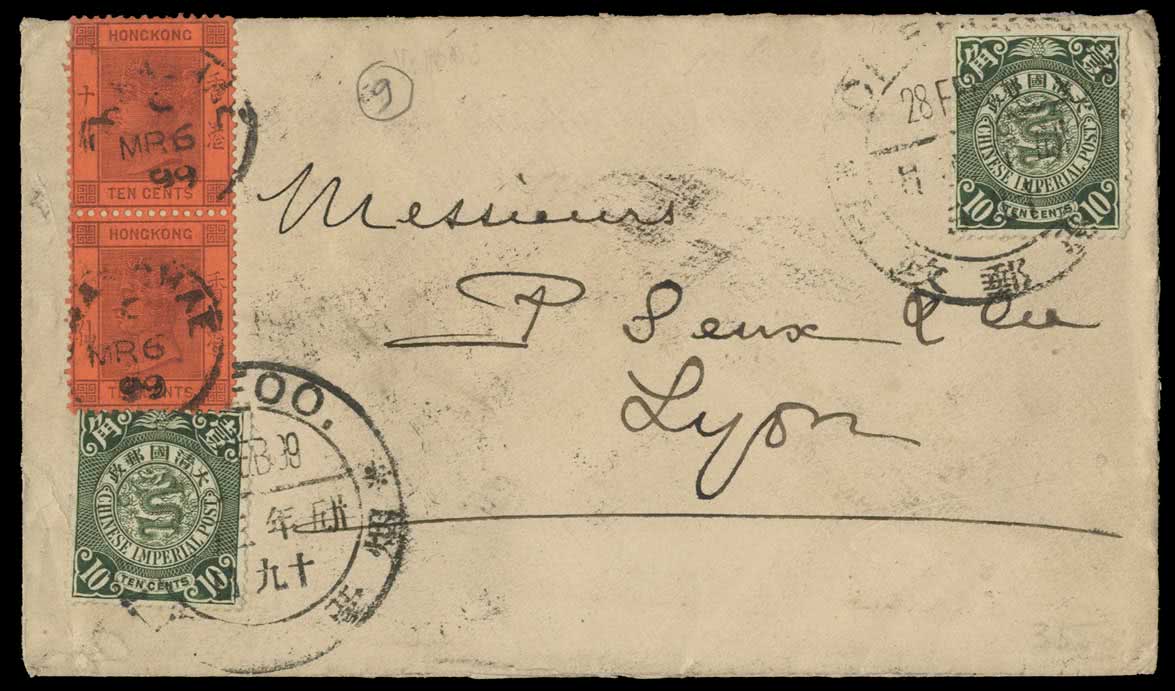 HONGKONG
MR6
99
TEN CENTS
HONGKONG
MR6
99
TEN CENTS
9
28 FE
角 壹
大清國郵政
CHINESE IMPERIAL POST
10 TEN CENTS 10
政 郵
Messieurs
P Seux & Cie
Lyon
FOO.
EB 99
年
九十
角 壹
大清國郵政
CHINESE IMPERIAL POST
10 TEN CENTS 10